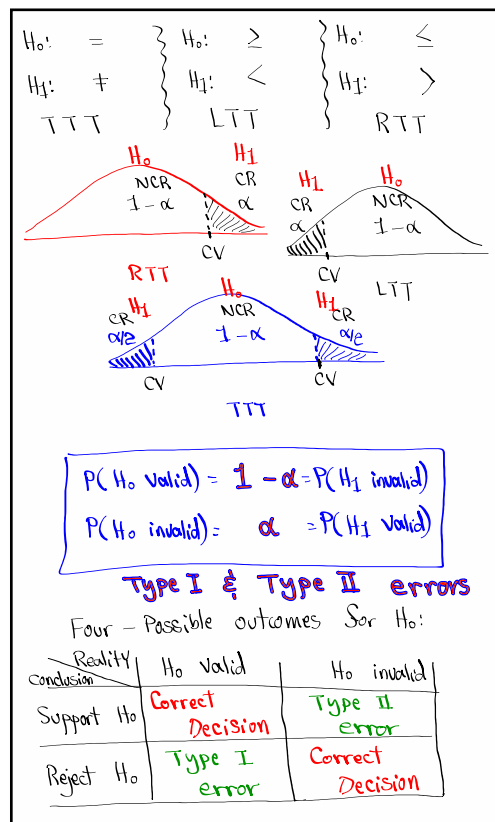 H₀: = H₀: ≥ H₀: ≤
H1: ≠ H1: < H1: >
TTT LTT RTT
H₀ H1
NCR CR
1-α α
CV
RTT
H1 H₀
CR NCR
α 1-α
CV
LTT
H1 H₀ H1
CR NCR CR
α/2 1-α α/2
CV CV
TTT
P(H₀ valid) = 1 - α = P(H1 invalid)
P(H₀ invalid) = α = P(H1 valid)
Type I & Type II errors
Four - Possible outcomes for H₀:
Reality H₀ Valid H₀ invalid
Conclusion
Support H₀ Correct Decision Type II error
Reject H₀ Type I error Correct Decision